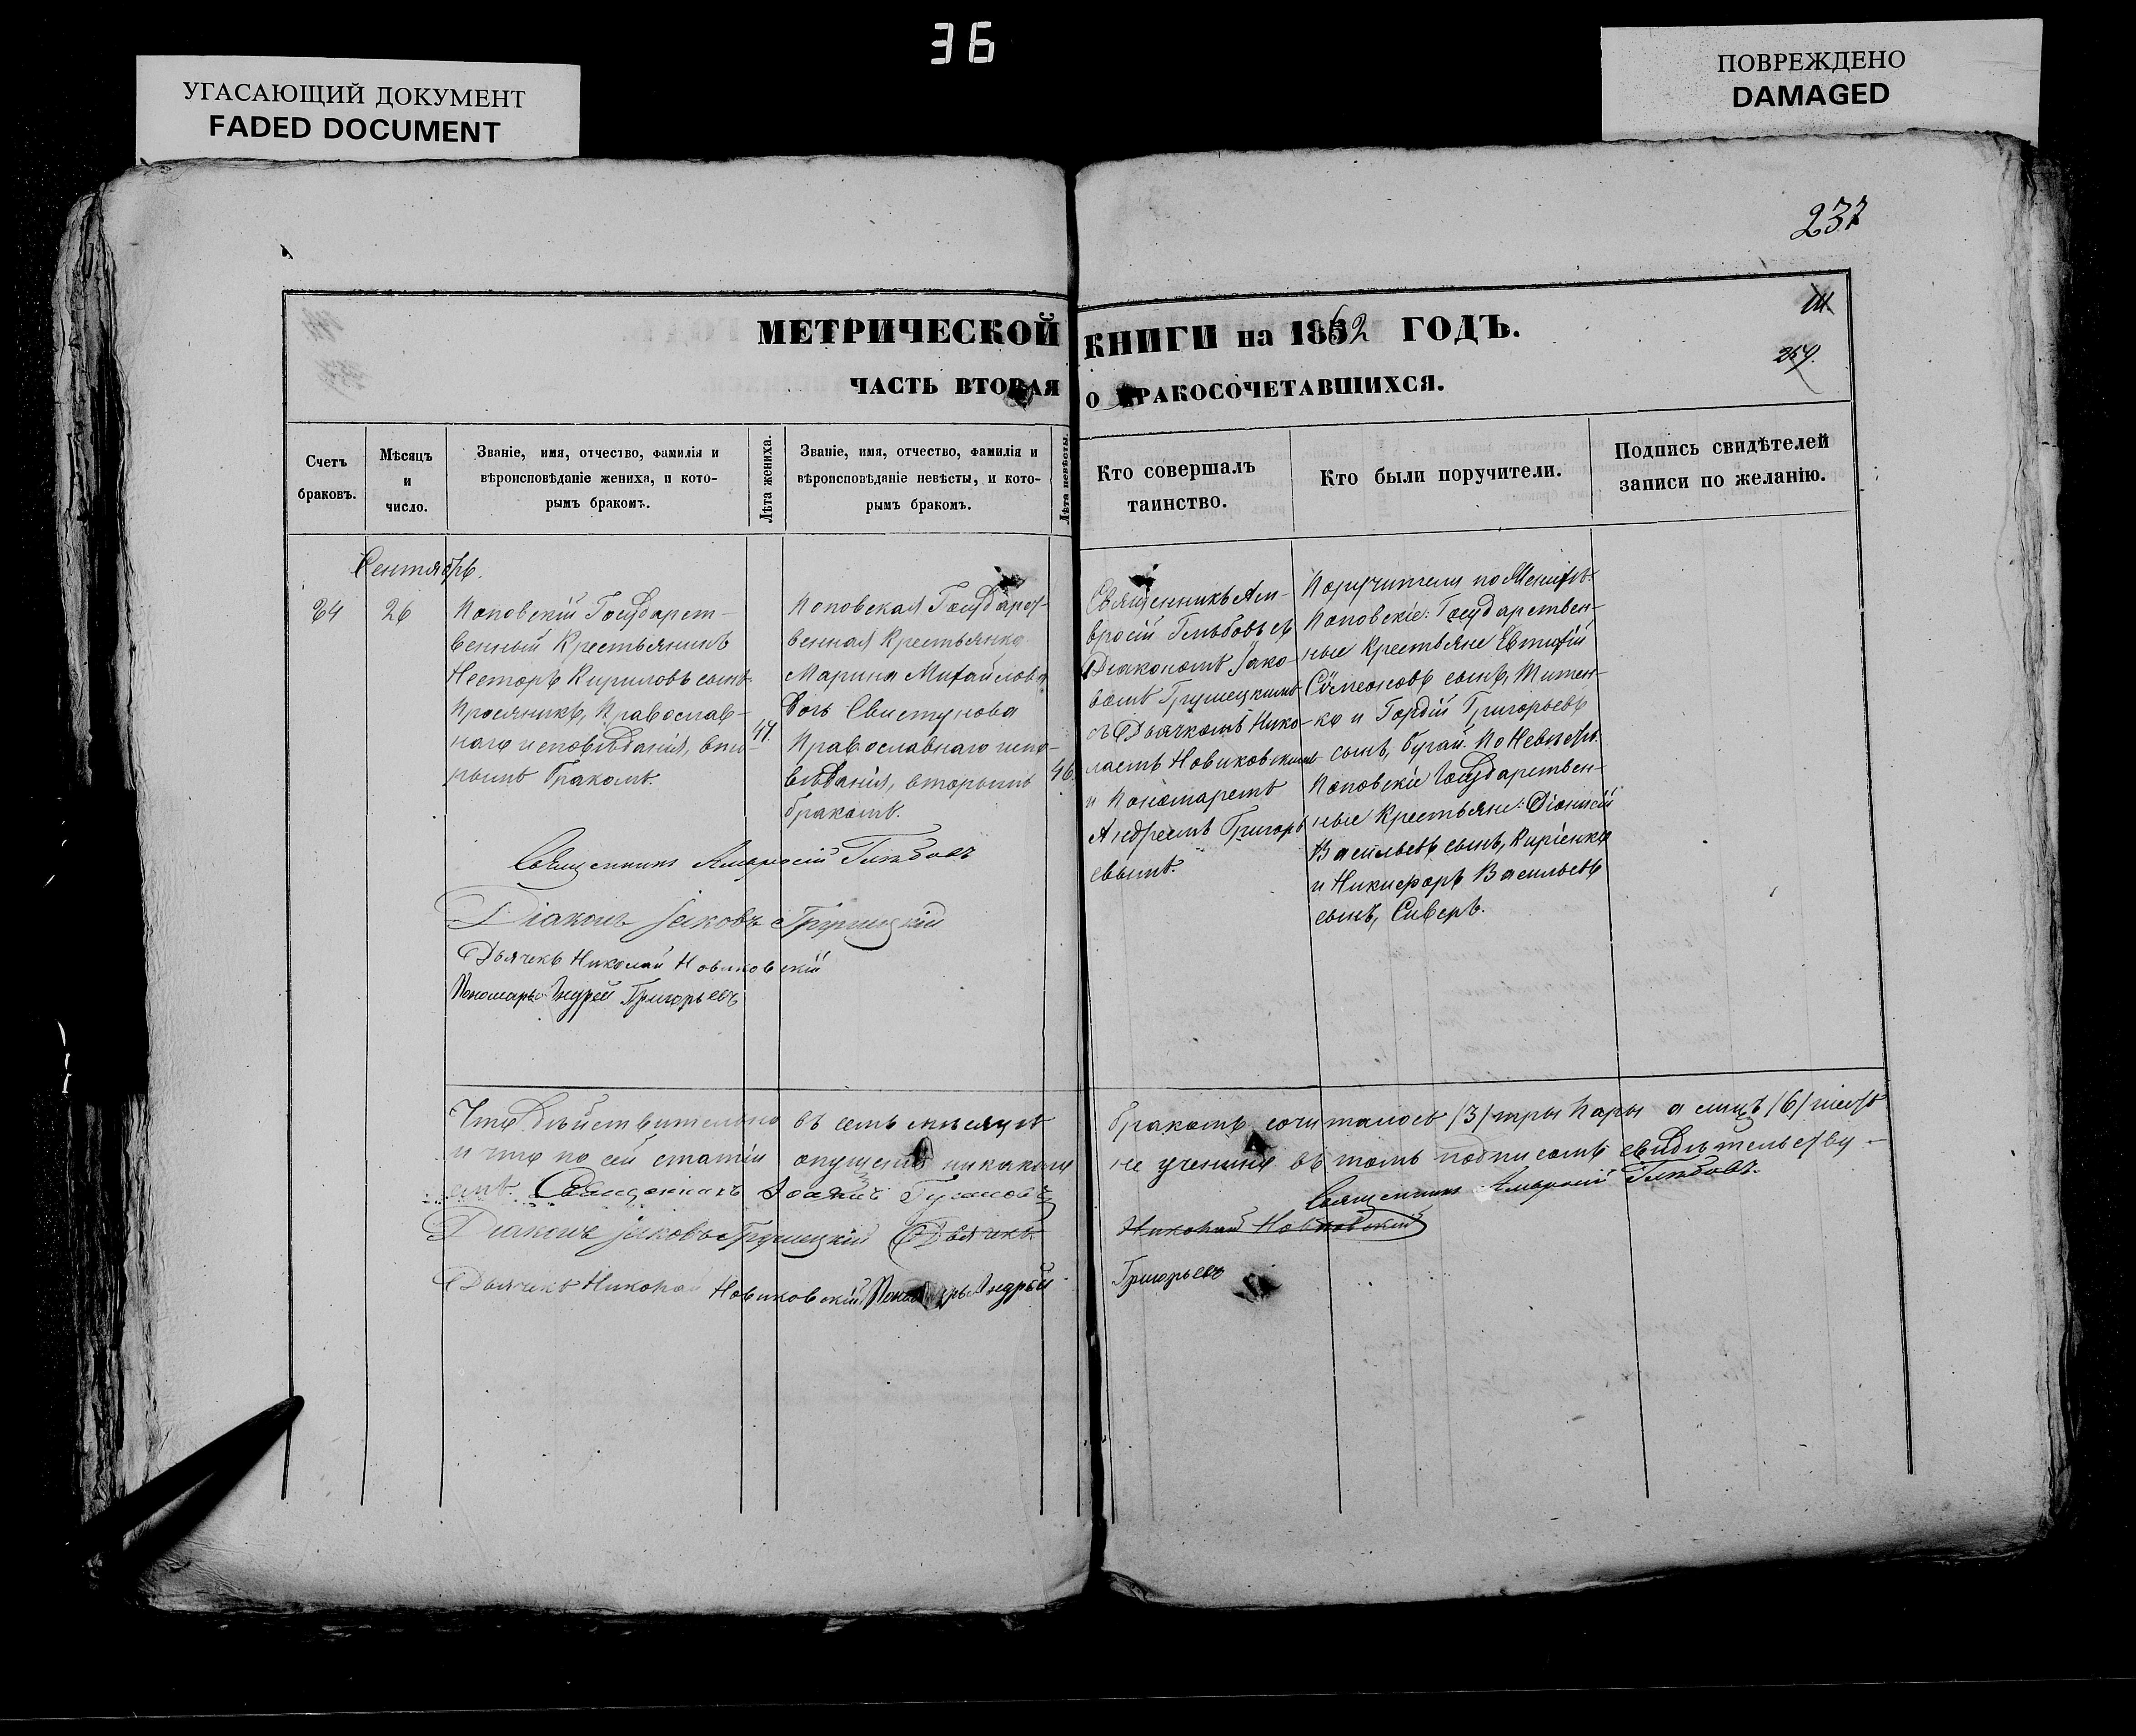 36
УГАСАЮЩИЙ ДОКУМЕНТ
FADED DOCUMENT
ПОВРЕЖДЕНО
DAMAGED
237
МЕТРИЧЕСКОЙ КНИГИ на 1862 ГОДЪ.
ЧАСТЬ ВТОРАЯ О БРАКОСОЧЕТАВШИХСЯ.
Счетъ браковъ.
Мѣсяцъ и число.
Званіе, имя, отчество, фамилія и
вѣроисповѣданіе жениха, и кото-
рымъ бракомъ.
Лѣта жениха.
Званіе, имя, отчество, фамилія и
вѣроисповѣданіе невѣсты, и кото-
рымъ бракомъ.
Лѣта невѣсты.
Кто совершалъ
таинство.
Кто были поручители.
Подпись свидѣтелей
записи по желанію.
Сентябрь.
24
26
Поповскій Государст-
венный Крестьянинъ
Несторъ Кириловъ сынъ
Просяникъ, Православ-
наго исповѣданія, вто-
рымъ бракомъ.
47.
Поповская Государст-
венная Крестьянка
Марина Михайлова
дочь Свистунова
Православнаго испо-
вѣданія, вторымъ
бракомъ.
46.
Священникъ Ам-
вросій Глѣбовъ съ
Діакономъ Іако-
вомъ Грушецкимъ
съ Дьячкомъ Нико-
лаемъ Новиковскимъ
и Пономаремъ
Андреемъ Григорь
евымъ.
Поручители по Женихѣ:
Поповскіе: Государствен-
ные Крестьяне Евтифій
Сѵмеоновъ сынъ, Титен-
ко и Гордій Григорьевъ
сынъ, Бугай. По Невѣстѣ.
Поповскіе Государствен-
ные Крестьяне: Діонисій
Васильевъ сынъ, Киріенко
и Никифоръ Васильевъ
сынъ, Сиверъ.
Священникъ Амвросій Глѣбовъ
Діаконъ Іаковъ Грушецкій
Дьячекъ Николай Новиковскій
Пономарь Андрей Григорьевъ
Что дѣйствительно въ семъ мѣсяцѣ бракомъ сочталось /3/ три пары а лицъ /6/ шесть
и что по сей статіи опущенія никакого не учинено въ томъ подписомъ свидѣтельству-
емъ. Священникъ Іоаннъ
Священникъ Амвросій Глѣбовъ.
Діаконъ Іаковъ Грушецкій Дьячекъ Николай Новиковскій
Дьячекъ Николай Новиковскій Пономарь Андрей Григорьевъ